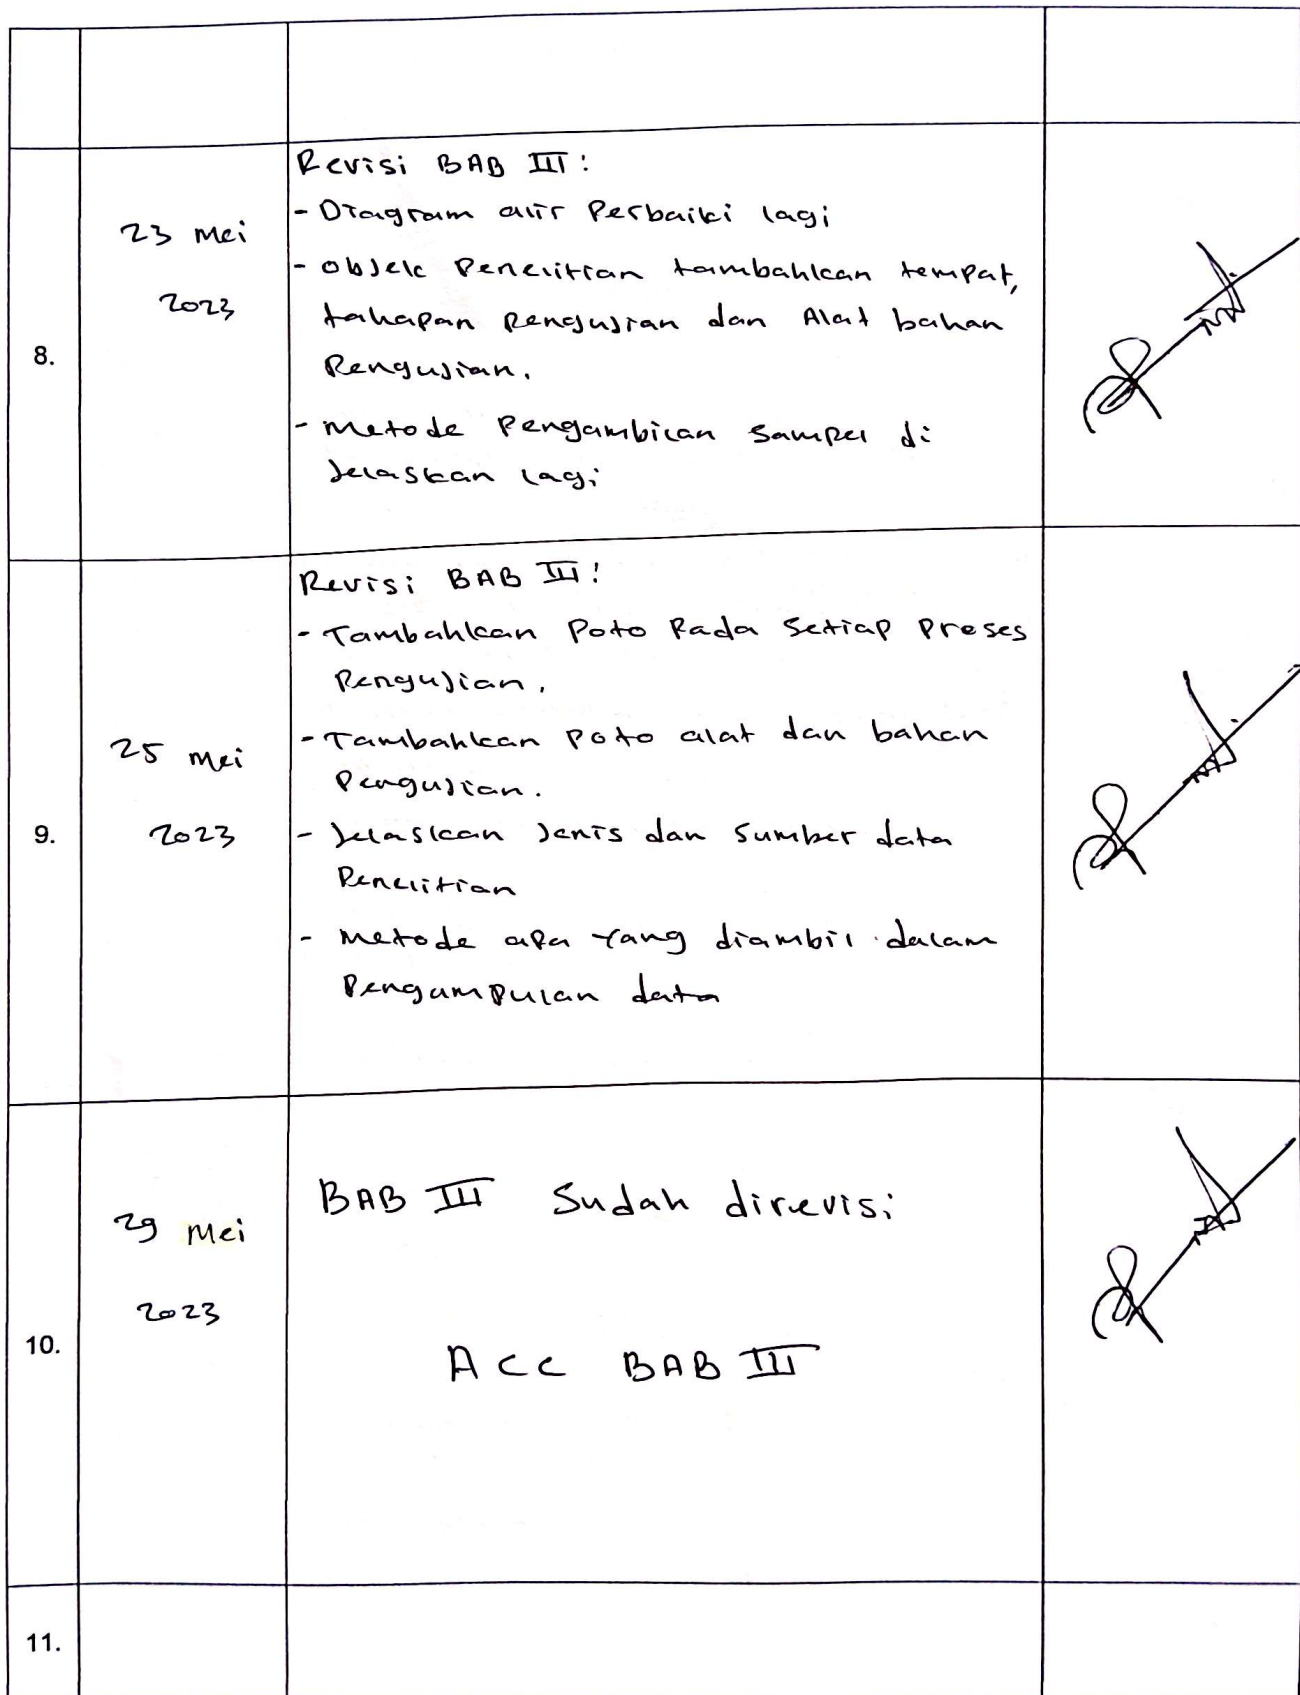 8.
23 Mei
2023
Revisi BAB III :
- Diagram alir Perbaiki lagi
- Objek Penelitian tambahkan tempat,
tahapan Pengujian dan Alat bahan
Pengujian.
- Metode Pengambilan Sampel di
Jelaskan lagi
9.
25 Mei
2023
Revisi BAB III :
- Tambahkan Poto Pada Setiap Proses
Pengujian.
- Tambahkan Poto alat dan bahan
Pengujian.
- Jelaskan Jenis dan Sumber data
Penelitian
- Metode apa Yang diambil dalam
Pengumpulan data
10.
29 Mei
2023
BAB III Sudah direvisi
ACC BAB III
11.